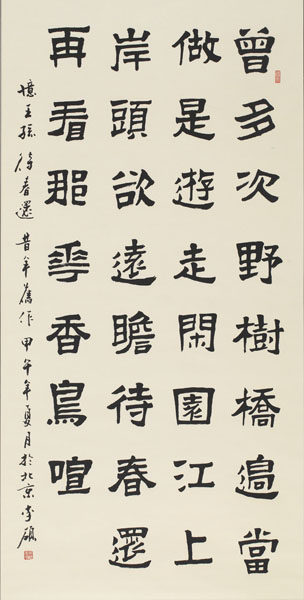 曾多次野樹橋邊當
做是遊走閑園江上
岸頭欲遠瞻待春還
再看那華香鳥喧
憶王孫 待春還 昔年舊作 甲午年夏月於北京